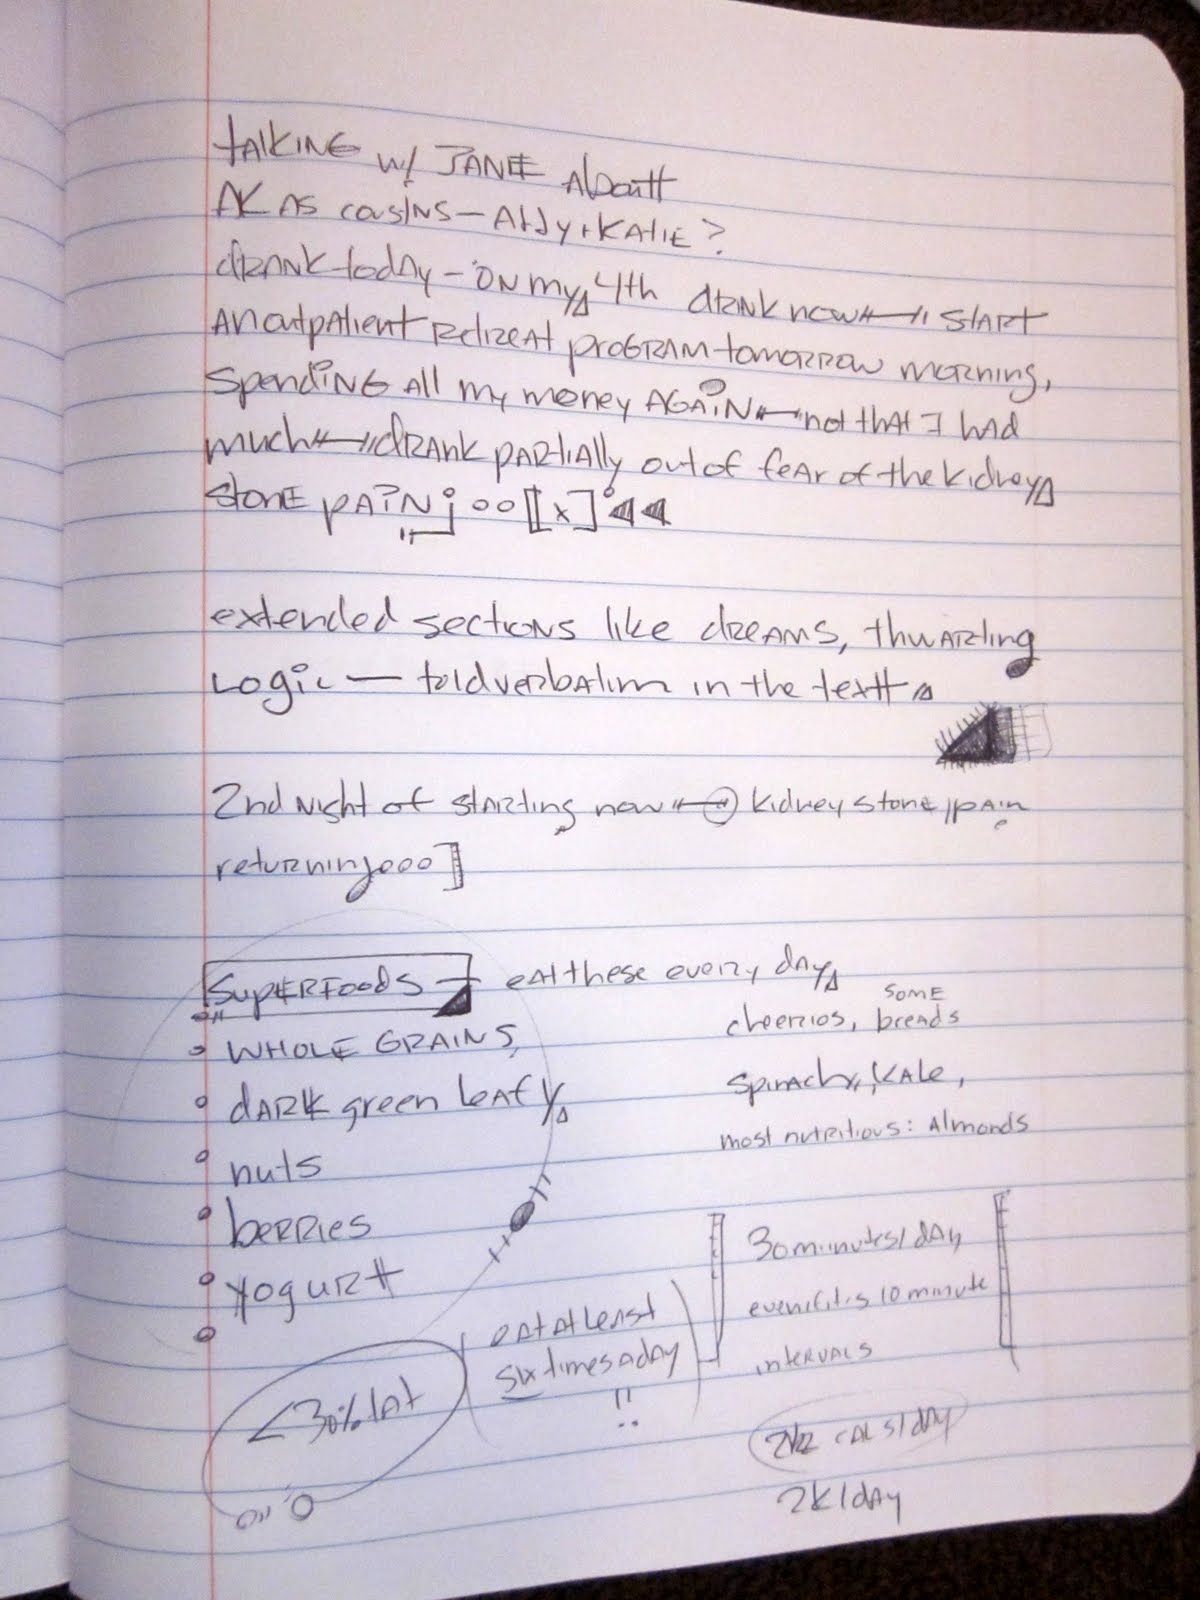 TALKING w/ JANE About
AK AS cousins — Addy + KATIE?
drank today - ON my 4th drank now ⟷ START
AN outpatient Retreat program tomorrow morning,
Spending all my money AGAIN ⟷ not that I had
much ⟷ drank partially out of fear of the kidney
stone pain j oo [[x]
extended sections like dreams, thwarting
Logic — told verbatim in the text
2nd Night of starting now ⟷ kidney stone pain
returning ooo]
SUPERFOODS — eat these every day
SOME
cheerios, breads
WHOLE GRAINS,
dark green leafy
spinach, KALE,
most nutritious: Almonds
nuts
berries
yogurt
30 minutes/day
even if it's 10 minute
intervals
eat at least
six times a day
!!
<30% fat
cals/day
2K/day